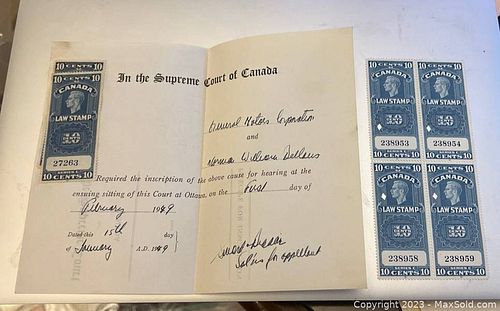 10 CENTS 10
10 CENTS 10
CANADA
LAW STAMP
10
27263
10 CENTS 10
In the Supreme Court of Canada
General Motors Corporation
and
William
Required the inscription of the above cause for hearing at the
ensuing sitting of this Court at Ottawa, on the First day of
February 1949
Dated this 15th day
of January A.D. 1949
for appellant
10 CENTS 10
CANADA
LAW STAMP
10
SERIES C
238953
10 CENTS 10
10 CENTS 10
CANADA
LAW STAMP
10
SERIES C
238954
10 CENTS 10
CANADA
LAW STAMP
10
SERIES C
10 CENTS 10
238958
CANADA
LAW STAMP
10
SERIES C
10 CENTS 10
238959
Copyright 2023 - MaxSold.com